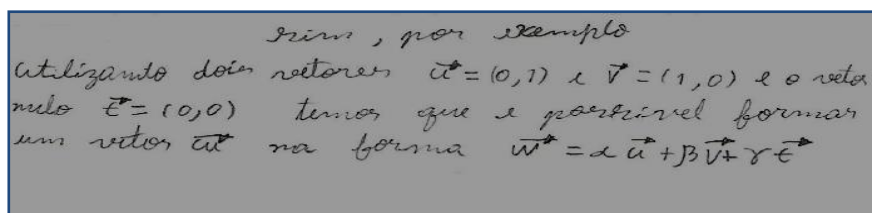 sim, por exemplo
utilizando dois vetores $\vec{u}$ = (0,1) e $\vec{v}$ = (1,0) e o veto
nulo $\vec{t}$ = (0,0) temos que e possivel formar
um vetor $\vec{w}$ na forma $\vec{w}$ = α$\vec{u}$ + β$\vec{v}$ + γ$\vec{t}$